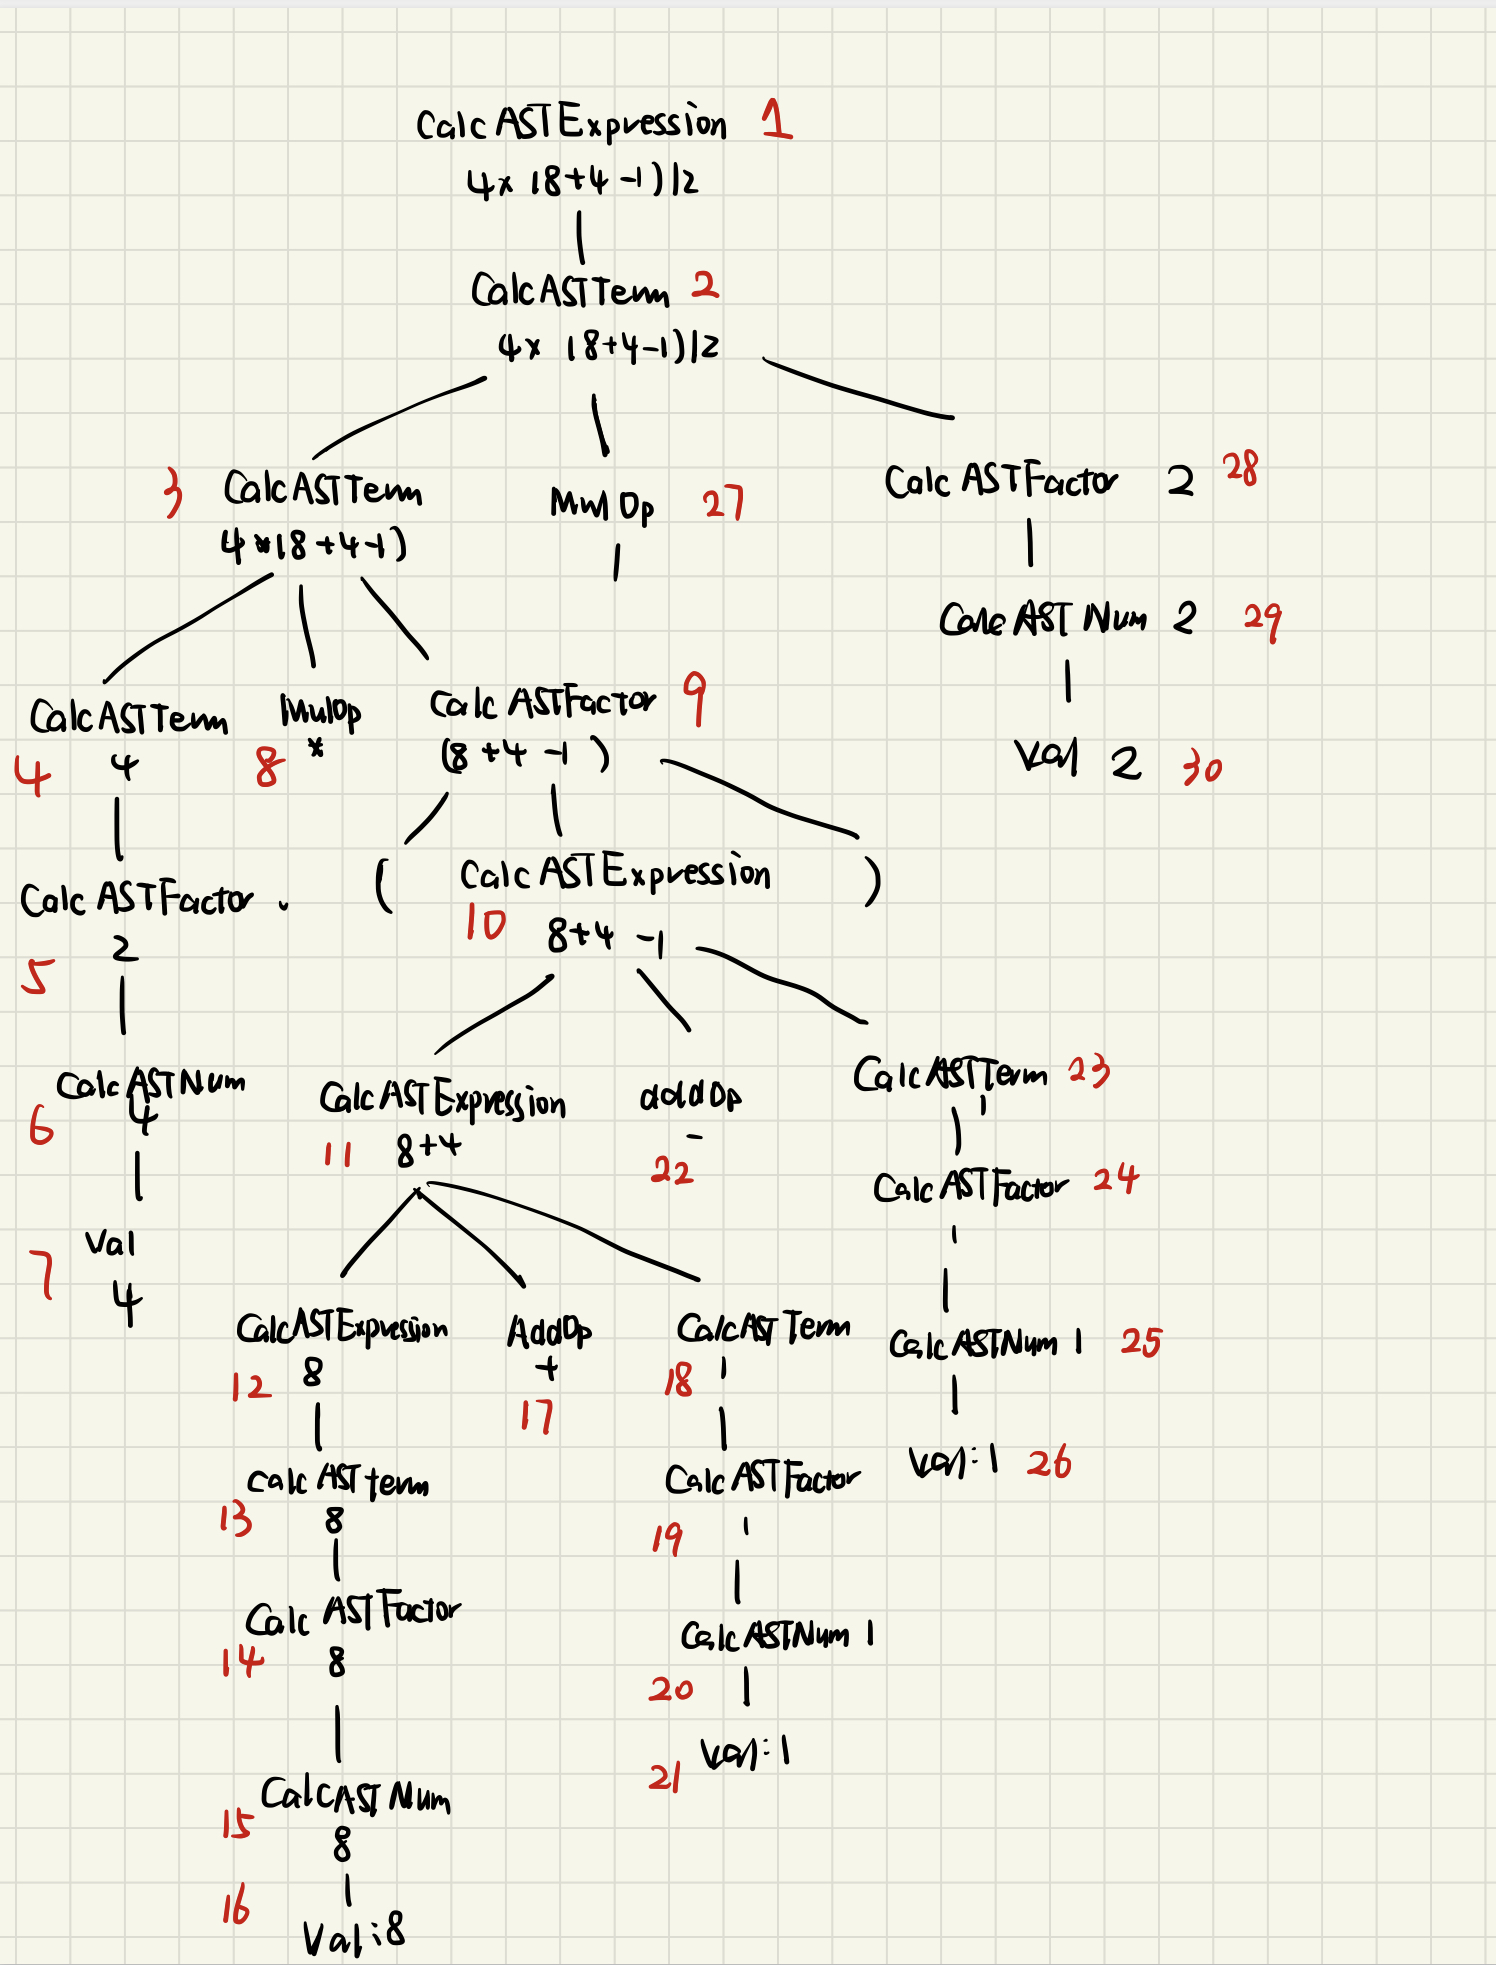 CalcASTExpression 1
4x (8+4-1)/2
CalcASTTerm 2
4x (8+4-1)/2
3 CalcASTTerm
4*(8+4-1)
MulOp 27
/
CalcASTFactor 2 28
CalcASTNum 2 29
Val 2 30
CalcASTTerm
4 4
MulOp
8 *
CalcASTFactor 9
(8+4-1)
CalcASTFactor
2
5
( CalcASTExpression )
10 8+4-1
CalcASTNum
4
6
CalcASTExpression
11 8+4
addOp
-
22
CalcASTTerm 23
1
CalcASTFactor 24
1
Val
7 4
CalcASTExpression
12 8
AddOp
+
17
CalcASTTerm
18 1
CalcASTNum 1 25
Val:1 26
CalcASTterm
13 8
CalcASTFactor
19 1
CalcASTFactor
14 8
CalcASTNum 1
20
Val:1
21
CalcASTNum
15 8
16
Val:8